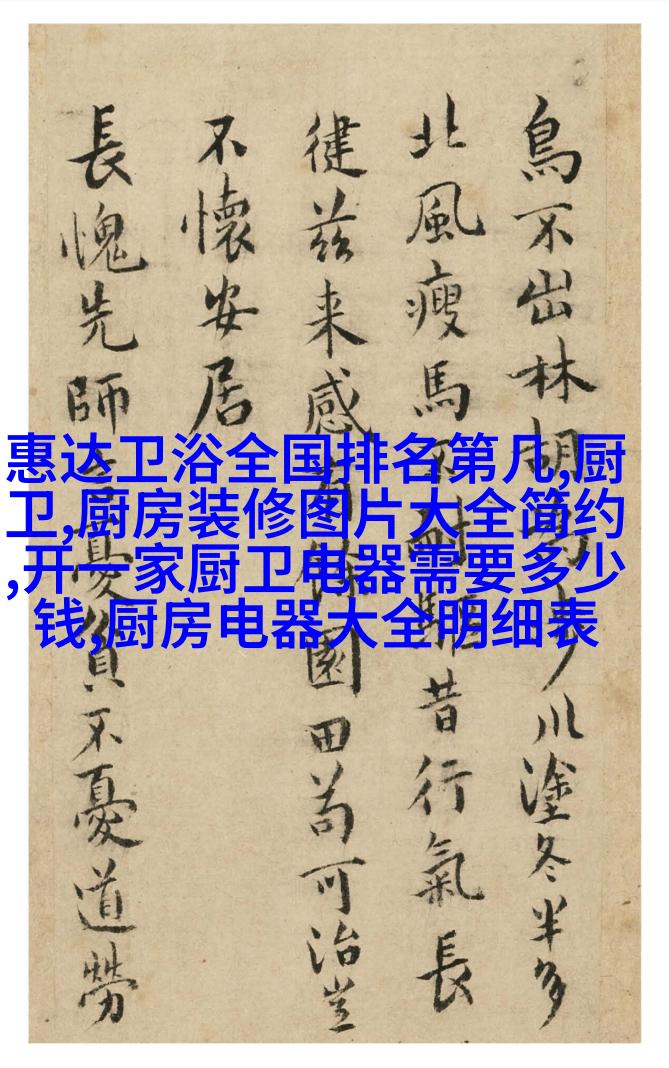 鳥不出林胡為川塗冬半多
北風瘦馬不耐驅昔行氣長
健茲来感餘園田苟可治豈
不懷安居
長愧先師憂貧不憂道勞
惠达卫浴全国排名第几,厨
卫,厨房装修图片大全简约
,开一家厨卫电器需要多少
钱,厨房电器大全明细表